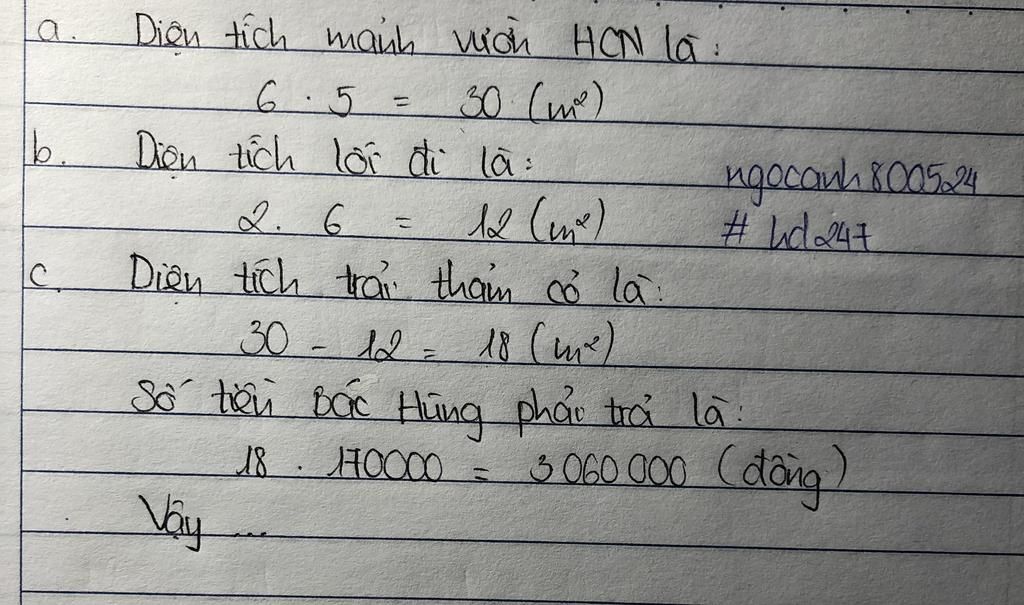 a. Diện tích mảnh vườn HCN là:
6 . 5 = 30 (m²)
b. Diện tích lối đi là:
2. 6 = 12 (m²)
ngocanh800524
# hd247
c. Diện tích trải thảm cỏ là:
30 - 12 = 18 (m²)
Số tiền Bác Hùng phải trả là:
18 . 170000 = 3060000 (đồng)
Vậy ...